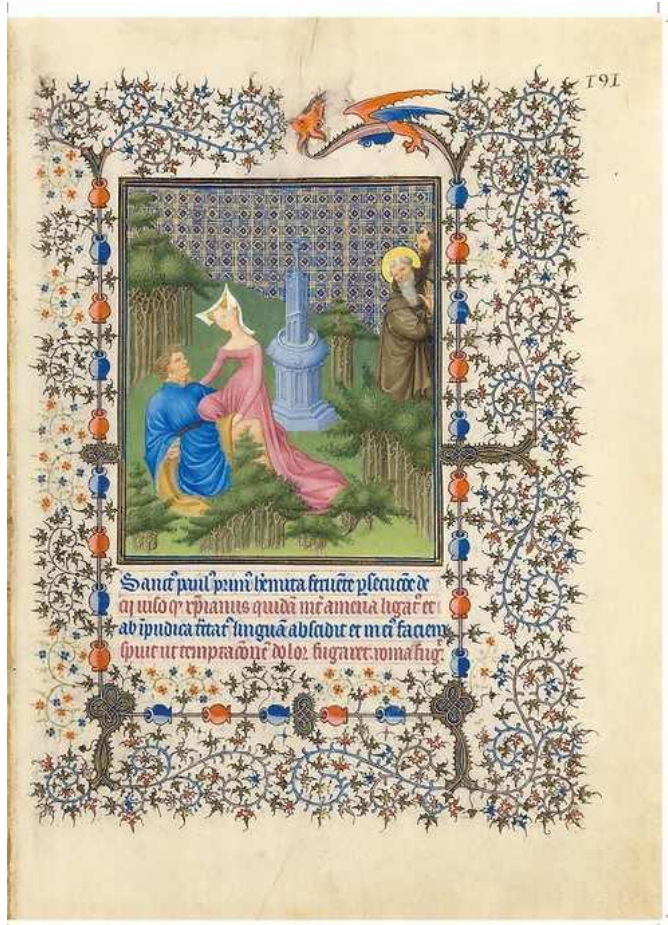 191
Sanctꝰ paulꝰ primꝰ hemita feruēte ꝑsecucōe de
cij uiso ꝙ xp̄ianus quidā int̄ amena ligatꝰ et
ab īpudica t̄ctatꝰ linguā abscidit et in ei faciem
spuit ut temptacōnē dolor fugaret. roma fuḡ.